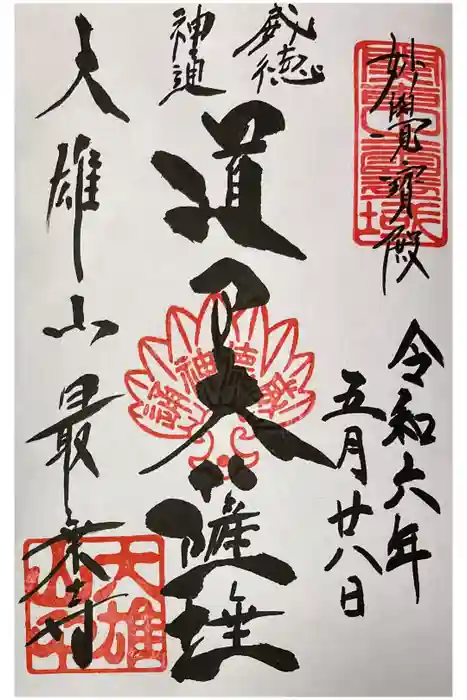 妙覺寶殿
令和六年
五月廿八日
威徳
神通
道了大薩埵
大雄山最乗寺
威徳神通
大雄